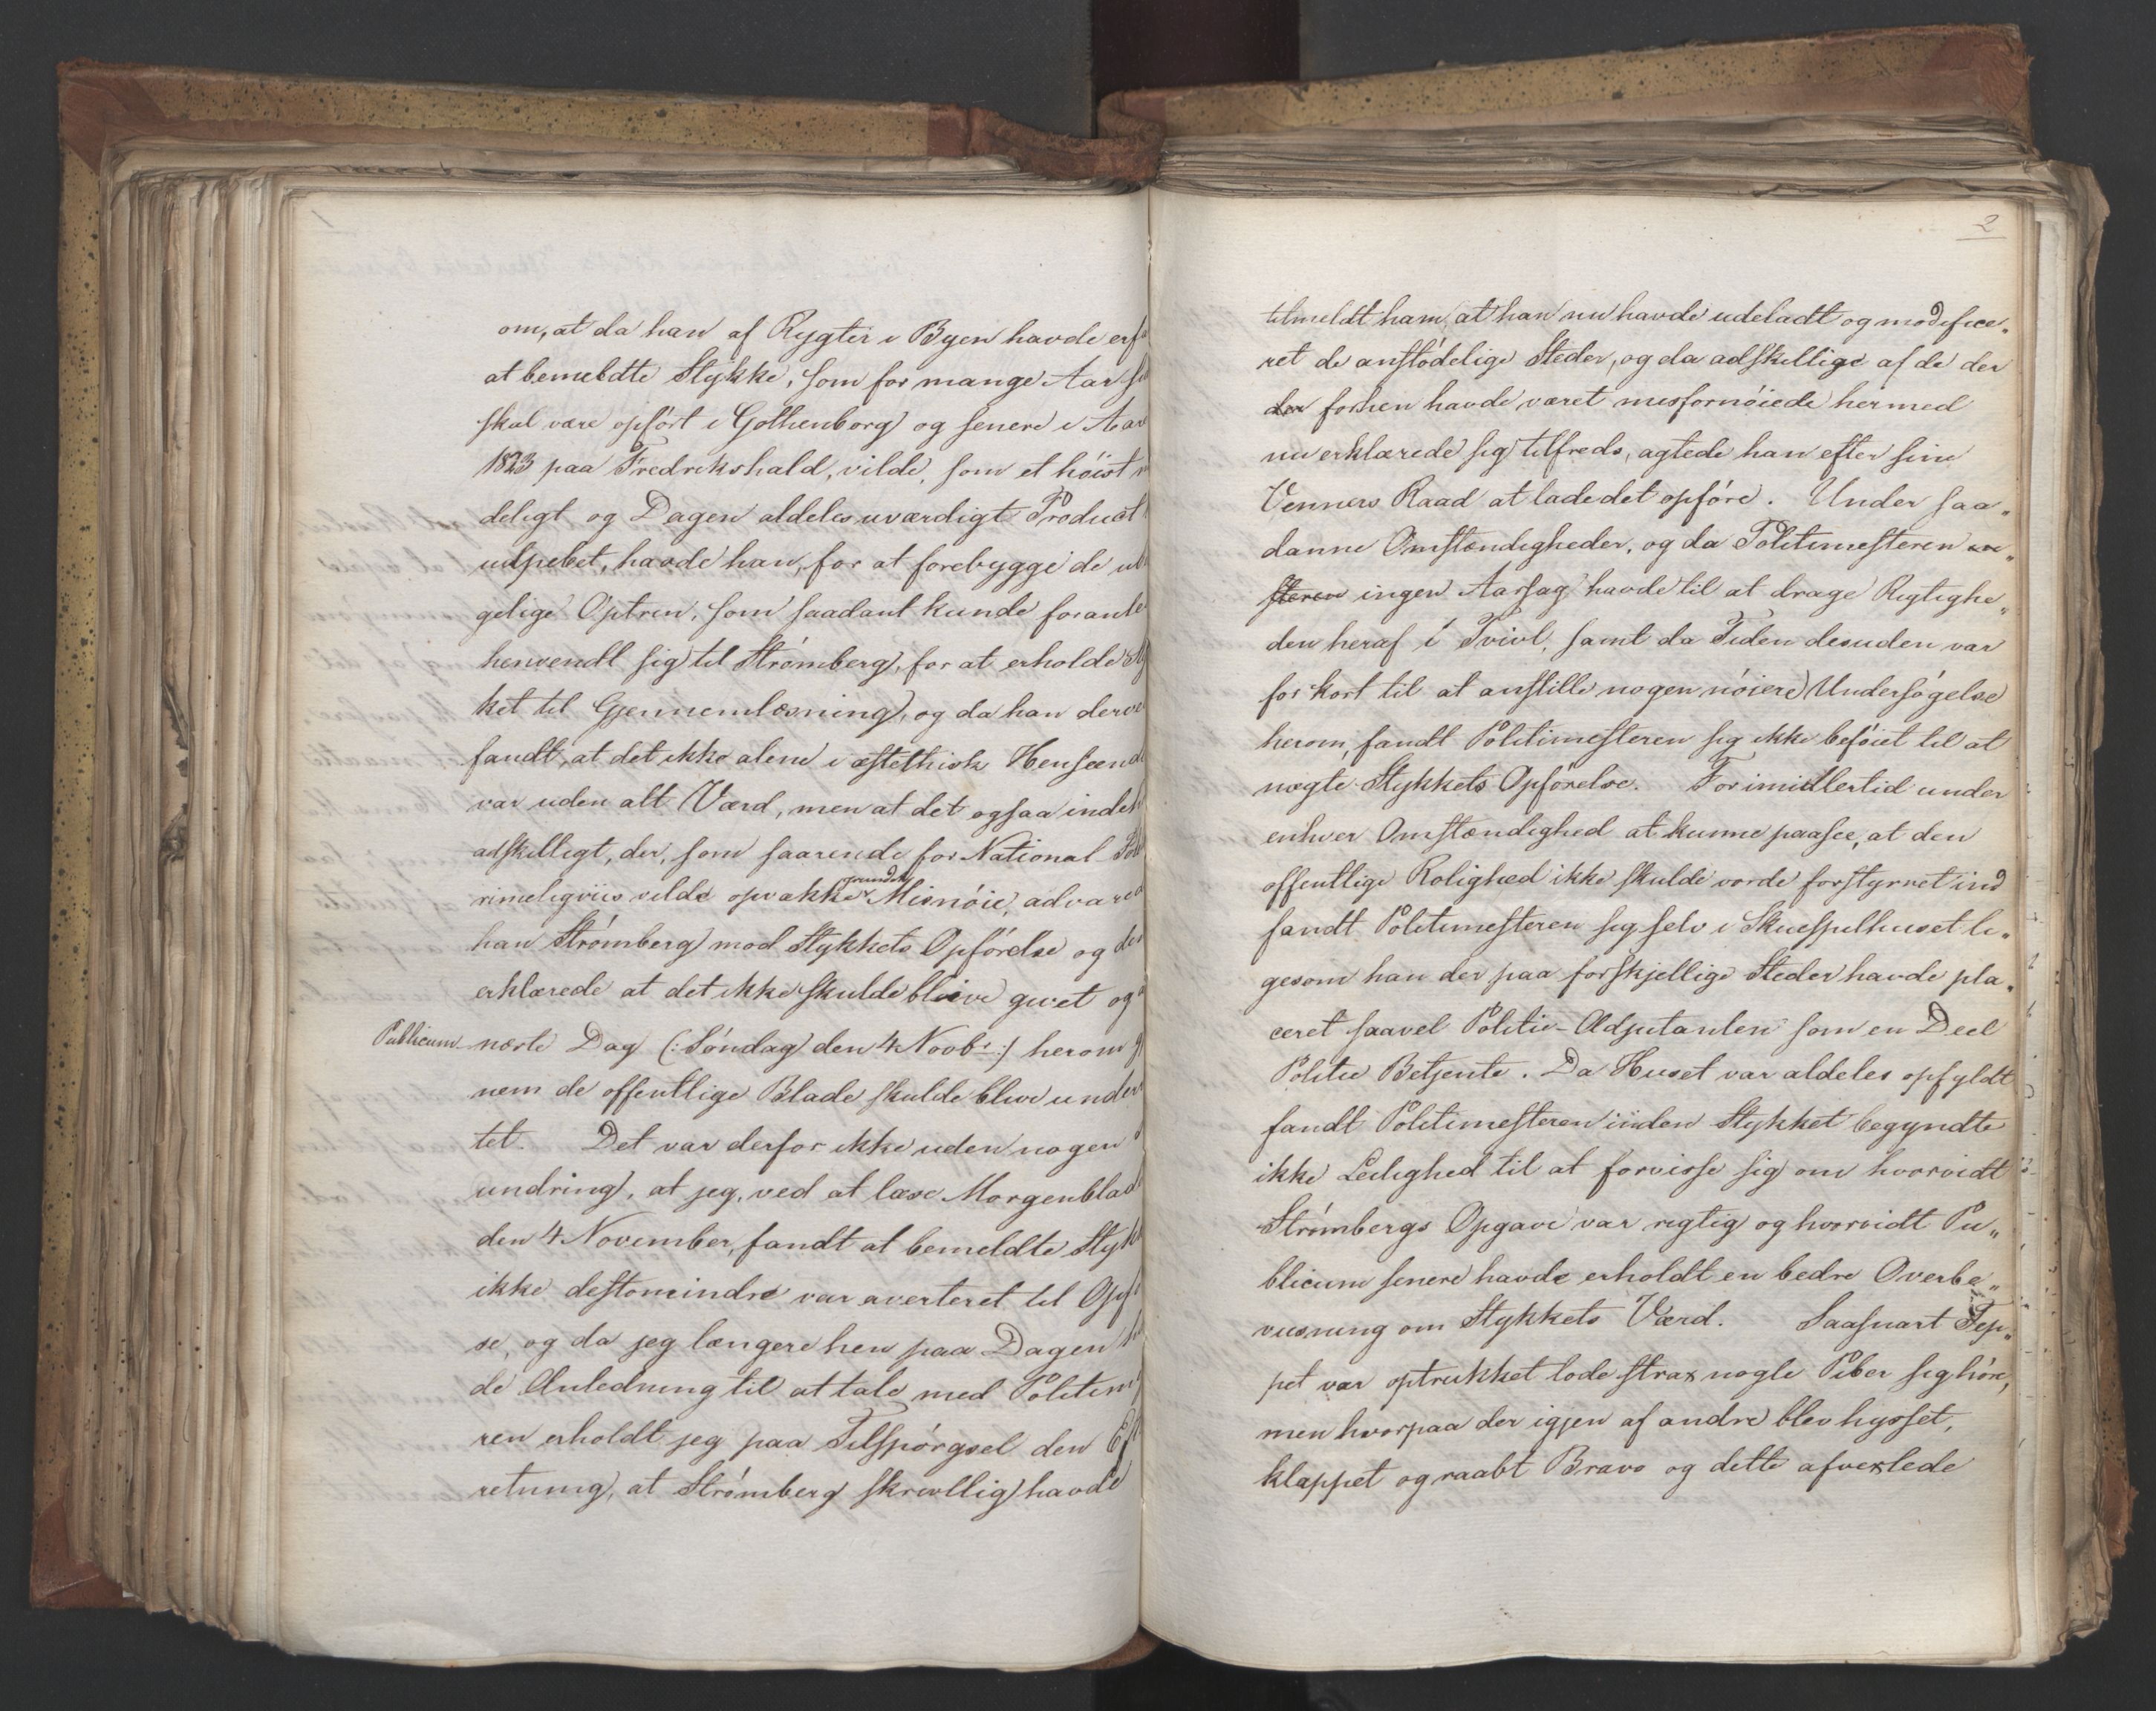 om, at da han af Rygter i Byen havde erf
at bemeldte Stykke, som for mange Aar si
skal være opført i Gothenborg og senere i Aar
1823 paa Fredrikshald, vilde, som et høist
deligt og Dagen aldeles uværdigt Product
udpebet, havde han, for at forebygge de
gelige Optrin, som saadant kunde foranle
henvendt sig til Strømberg, for at erholde
ket til Gjennemlæsning, og da han derve
fandt, at det ikke alene i æsthetisk Henseend
var uden alt Værd, men at det ogsaa indeh
adskilligt, der, som saarende for National
rimeligviis vilde opvække grundet Misnøie, advared
han Strømberg mod Stykkets Opførelse og den
erklærede at det ikke skulde blive givet og
Publicum næste Dag (: Søndag den 4 Novbr :) herom gj
nem de offentlige Blade skulde blive under
tet. Det var derfor ikke uden nogen
undring, at jeg, ved at læse Morgenblad
den 4 November, fandt at bemeldte Styk
ikke destomindre var averteret til Opf
se, og da jeg længere hen paa Dagen
de Anledning til at tale med Politim
ren erholdt jeg paa Tilspørgsel den Ef
retning, at Strømberg skrivtlig havde
2
tilmeldt ham, at han nu havde udeladt og modifice„
ret de anstødelige Steder, og da adskillige af de der
der forhen havde været misfornøiede hermed
nu erklærede sig tilfreds, agtede han efter sine
Venners Raad at lade det opføre. Under saa„
danne Omstændigheder, og da Politimesteren
steren ingen Aarsag havde til at drage Rigtighe„
den heraf i Tvivl, samt da Tiden desuden var
for kort til at anstille nogen nøiere Undersøgelse
herom, fandt Politimesteren sig ikke beføiet til at
nægte Stykkets Opførelse. For imidlertid under
enhver Omstændighed at kunne paasee, at den
offentlige Rolighed ikke skulde vorde forstyrret ind
fandt Politimesteren sig selv i Skuespilhuset li„
gesom han der paa forskjellige Steder havde pla„
ceret saavel Politie-Adjutanten som en Deel
Politie Betjente. Da Huset var aldeles opfyldt
fandt Politimesteren inden Stykket begyndte
ikke Leilighed til at forvisse sig om hvorvidt
Strømbergs Opgave var rigtig og hvorvidt Pu„
blicum senere havde erholdt en bedre Overbe„
viisning om Stykkets Værd. Saasnart Tep„
pet var optrukket lode strax nogle Piber sig høre,
men hvorpaa der igjen af andre blev hysset,
klappet og raabt Bravo og dette afvexlede